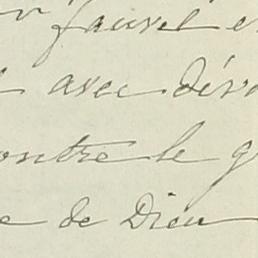 fauvel e
avec dév
ontre le g
e de Dieu